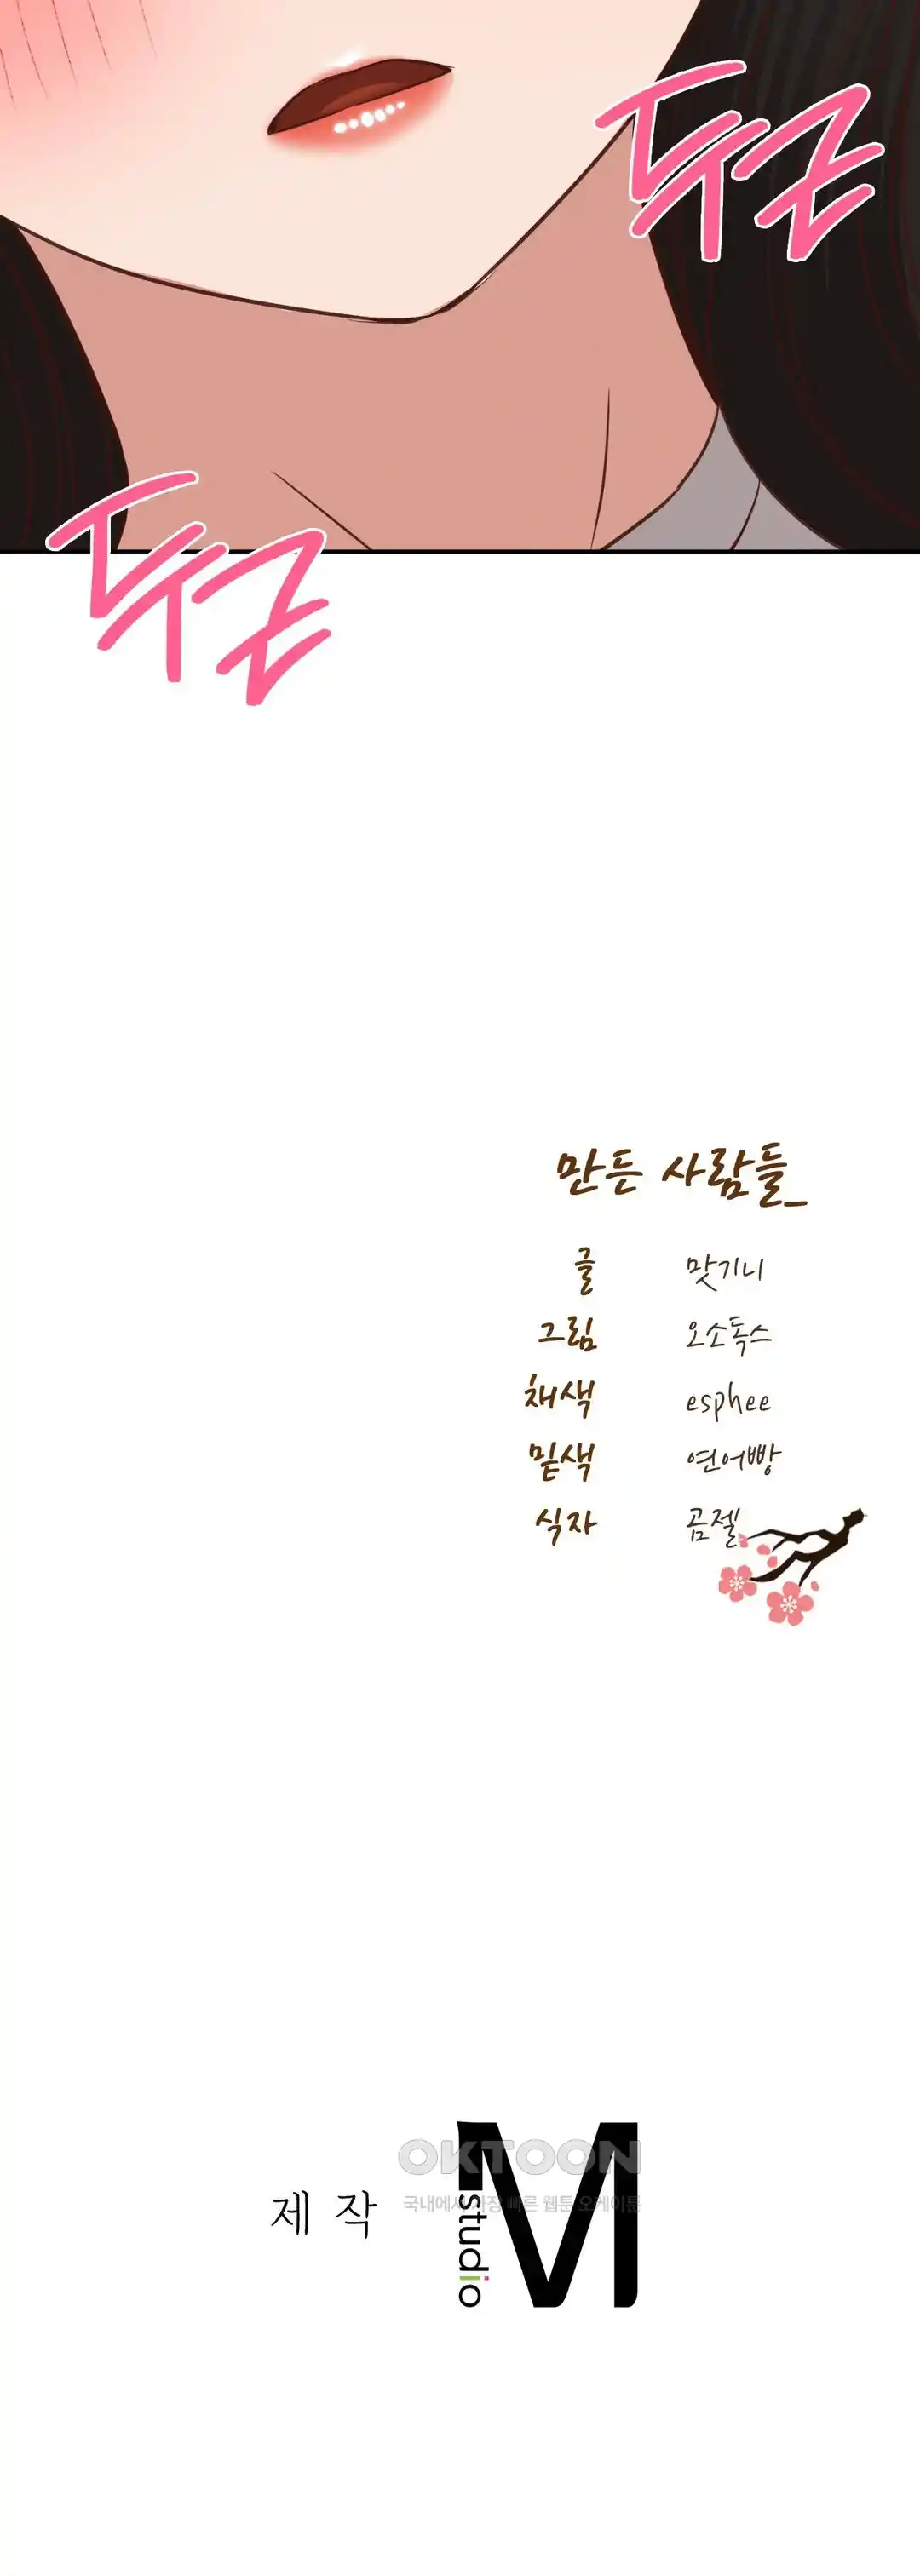 두근
두근
만든 사람들_
글 맛기니
그림 오소독스
채색 esphee
밑색 연어빵
식자 곰젤
OKTOON
제작 M studio
국내에서 가장 빠른 웹툰 오케이툰